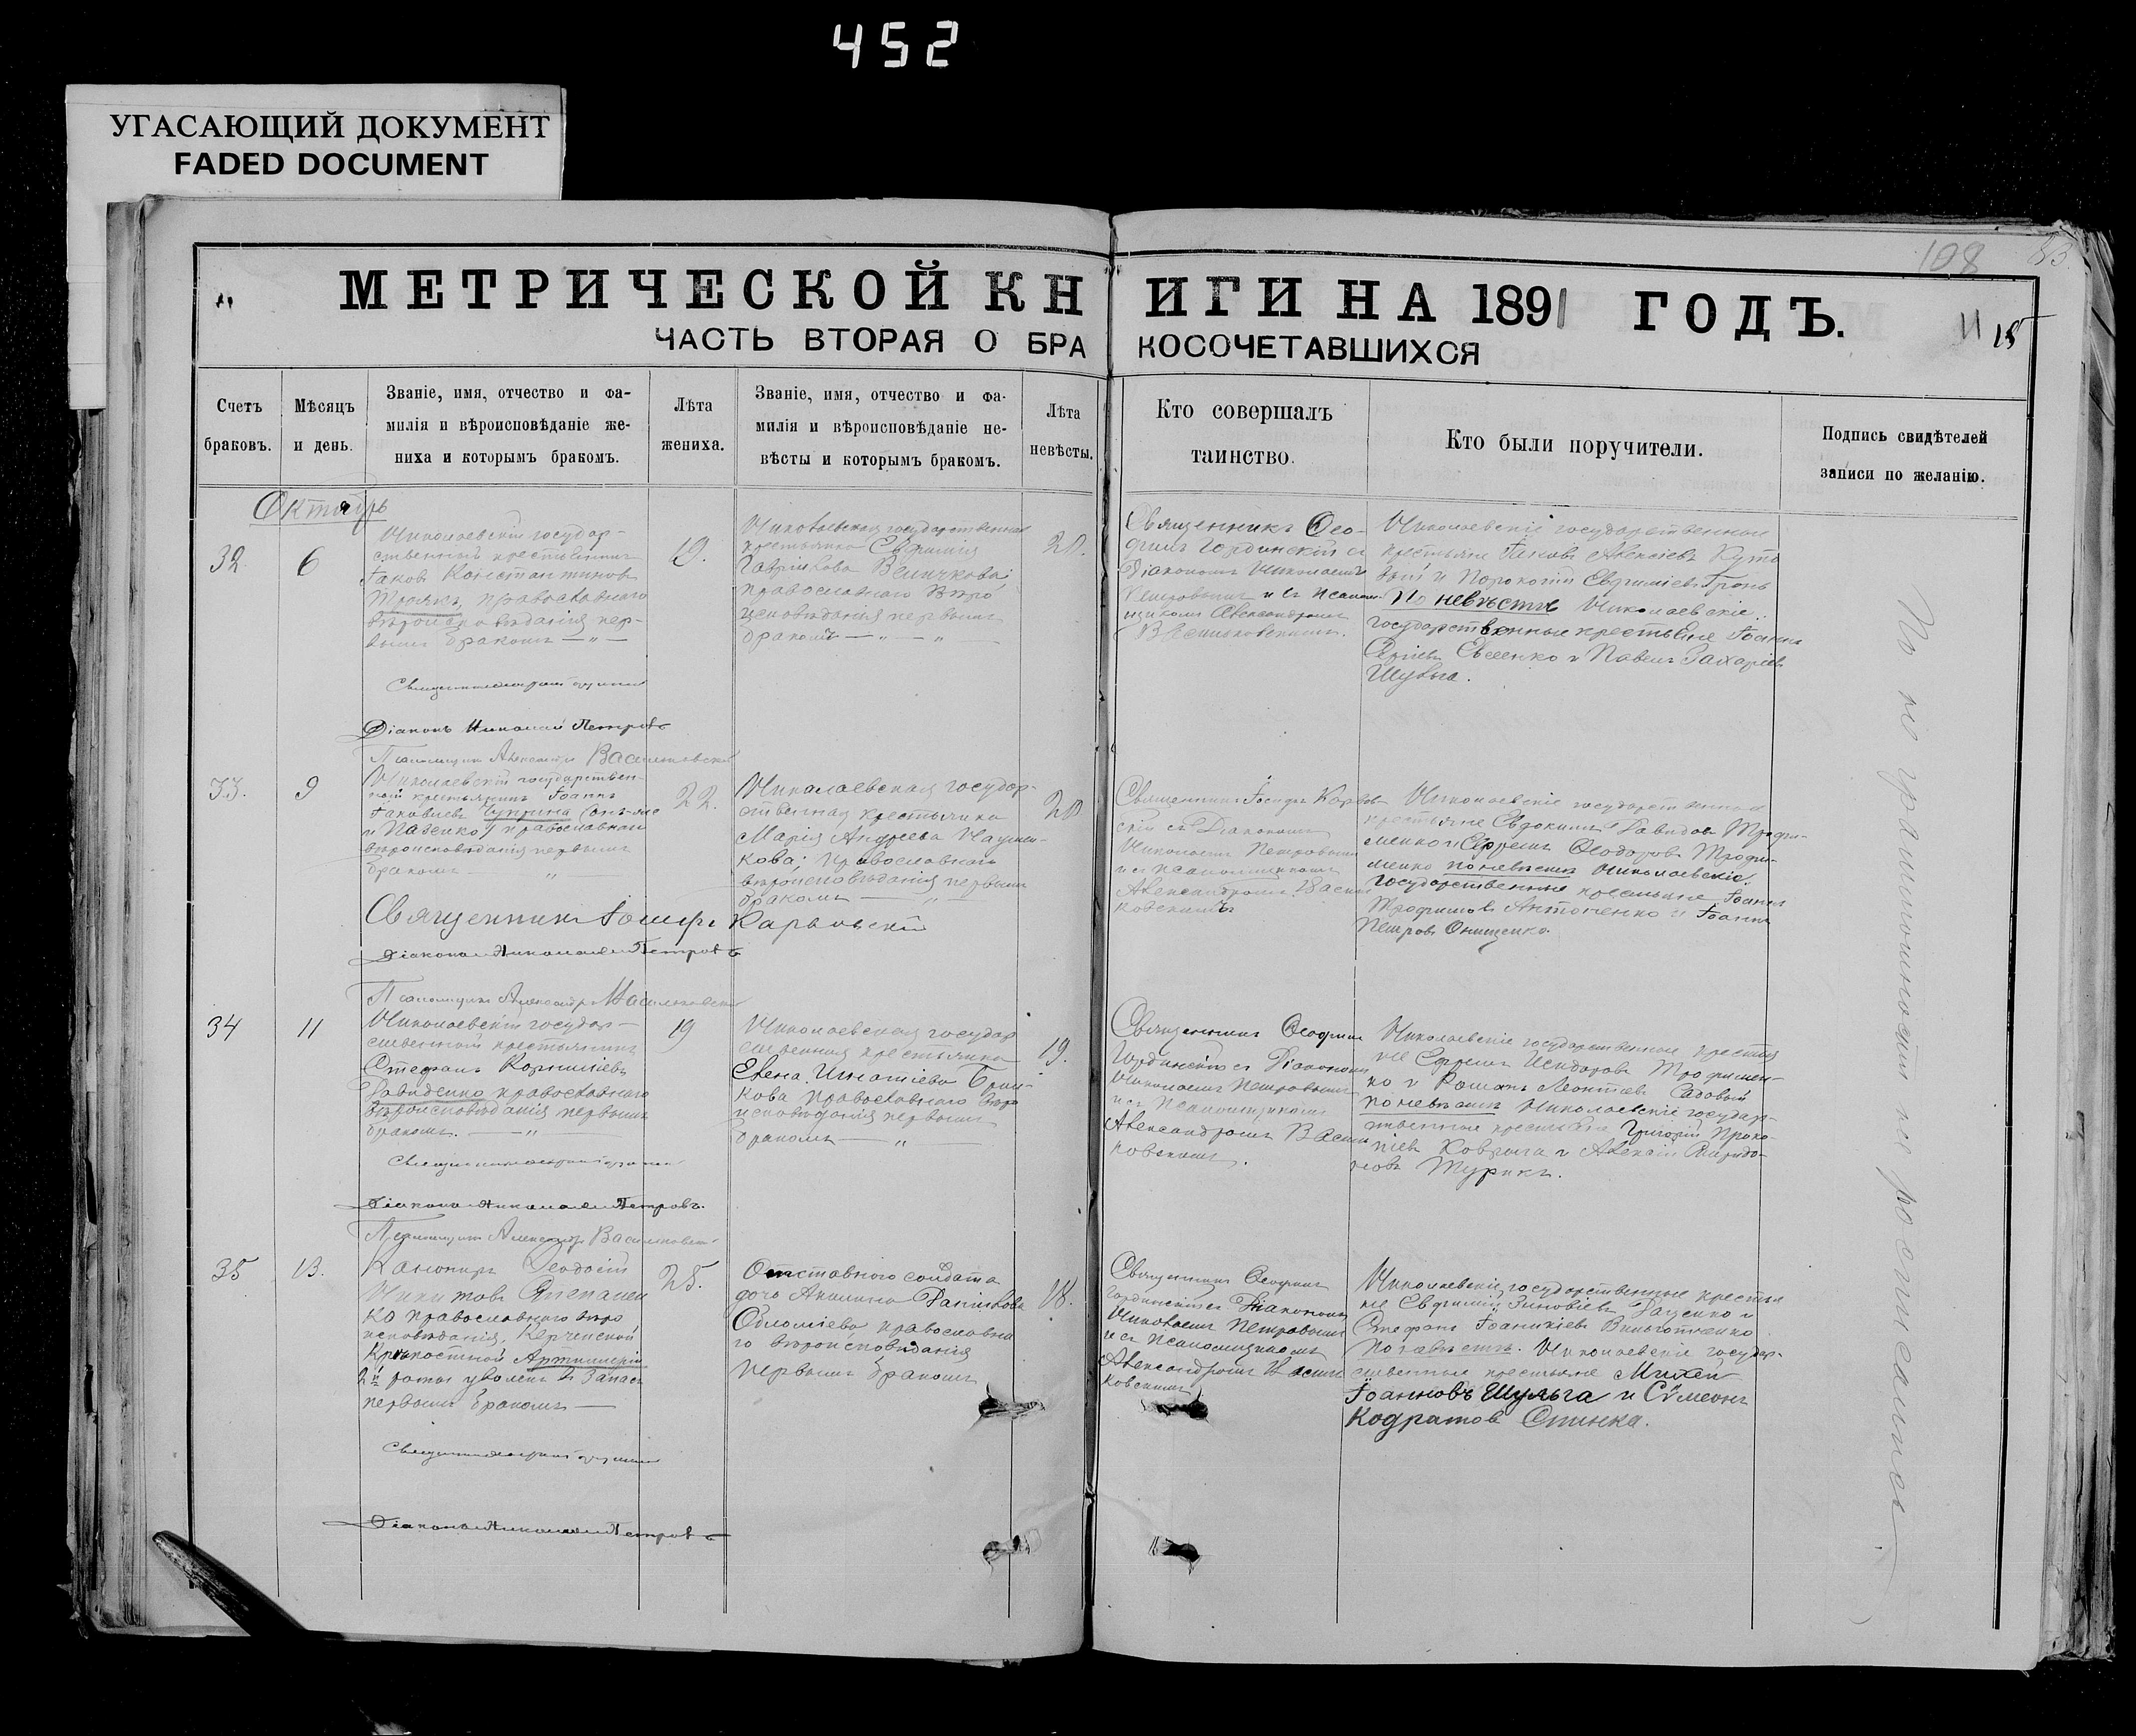 452
УГАСАЮЩИЙ ДОКУМЕНТ
FADED DOCUMENT
108
МЕТРИЧЕСКОЙ КНИГИ НА 1891 ГОДЪ.
15
ЧАСТЬ ВТОРАЯ О БРАКОСОЧЕТАВШИХСЯ
Счетъ
браковъ.
Мѣсяцъ
и день.
Званіе, имя, отчество и фа-
милія и вѣроисповѣданіе же-
ниха и которымъ бракомъ.
Лѣта
жениха.
Званіе, имя, отчество и фа-
милія и вѣроисповѣданіе не-
вѣсты и которымъ бракомъ.
Лѣта
невѣсты.
Кто совершалъ
таинство.
Кто были поручители.
Подпись свидѣтелей
записи по желанію.
Октябрь
32.
6
Николаевскій государ-
ственный крестьянинъ
Іаковъ Константиновъ
православнаго
вѣроисповѣданія пер-
вымъ бракомъ — „ —
19.
Николаевская государственная
крестьянка Евфимія
Величкова;
православнаго вѣро
исповѣданія первымъ
бракомъ — „ — „ —
20.
Священникъ Ѳео-
филъ Гординскій съ
Діакономъ Николаемъ
Петровымъ и съ псалом-
щикомъ Александромъ
Васильковскимъ.
Николаевскіе государственные
крестьяне Іаковъ Алексіевъ
и Прокопій Евфиміевъ
По невѣстѣ Николаевскіе
государственные крестьяне Іоаннъ
и Павелъ Захаріевъ
Шульга.
Діаконъ Николай Петровъ
Псаломщикъ Александръ Васильковскій
33.
9
Николаевскій государствен-
ный крестьянинъ Іоаннъ
Іаковлевъ Чуприна (онъ-же
и Пазенко) православнаго
вѣроисповѣданія первымъ
бракомъ — „
22.
Николаевская государ-
ственная крестьянка
Марія Андреева
кова; православнаго
вѣроисповѣданія первымъ
бракомъ — „ —
20
Священникъ Іосифъ Карвов-
скій съ Діакономъ
Николаемъ Петровымъ
и съ псаломщикомъ
Александромъ Василь
ковскимъ
Николаевскіе государственные
крестьяне Евдокимъ Давидовъ Трофи-
менко и Ефремъ Ѳеодоровъ Трофи-
менко по невѣстѣ Николаевскіе
государственные крестьяне Іоаннъ
Трофимовъ Антоненко и Іоаннъ
Петровъ Онищенко.
Священникъ Іосифъ Карвовскій
Діаконъ Николай Петровъ
Псаломщикъ Александръ Васильковскій
34
11
Николаевскій государ-
ственный крестьянинъ
Стефанъ Корниліевъ
Давиденко православнаго
вѣроисповѣданія первымъ
бракомъ. — „ —
19
Николаевская государ
ственная крестьянка
Елена Игнатіева
кова православнаго вѣро
исповѣданія первымъ
бракомъ — „
19.
Священникъ Ѳеофилъ
Гординскій съ Діакономъ
Николаемъ Петровымъ
и съ псаломщикомъ
Александромъ Василь
ковскимъ.
Николаевскіе государственные крестья
не Ефремъ Исидоровъ Трофимен-
ко и Романъ Леонтіевъ Садовый
по невѣстѣ Николаевскіе государ-
ственные крестьяне Григорій Проко-
піевъ Коврига и Алексій Спиридо-
новъ Турикъ.
Діаконъ Николай Петровъ.
Псаломщикъ Александръ Васильковскій
35
13.
Канониръ Ѳеодосій
Никитовъ Степанен
ко православнаго вѣро
исповѣданія, Керченской
Крѣпостной Артиллеріи
2й роты уволенъ въ запасъ
первымъ бракомъ —
25.
Отставного солдата
дочь Акилина Даніилова
православна
го вѣроисповѣданія
первымъ бракомъ
18.
Священникъ Ѳеофилъ
Гординскій съ Діакономъ
Николаемъ Петровымъ
и съ псаломщикомъ
Александромъ Василь
ковскимъ
Николаевскіе государственные крестья
не Евфимій Зиновіевъ Даценко и
Стефанъ Іоанникіевъ
По невѣстѣ. Николаевскіе государ-
ственные крестьяне Михей
Іоанновъ Шульга и Сѵмеонъ
Кодратовъ Спинка.
Діаконъ Николай Петровъ
По не